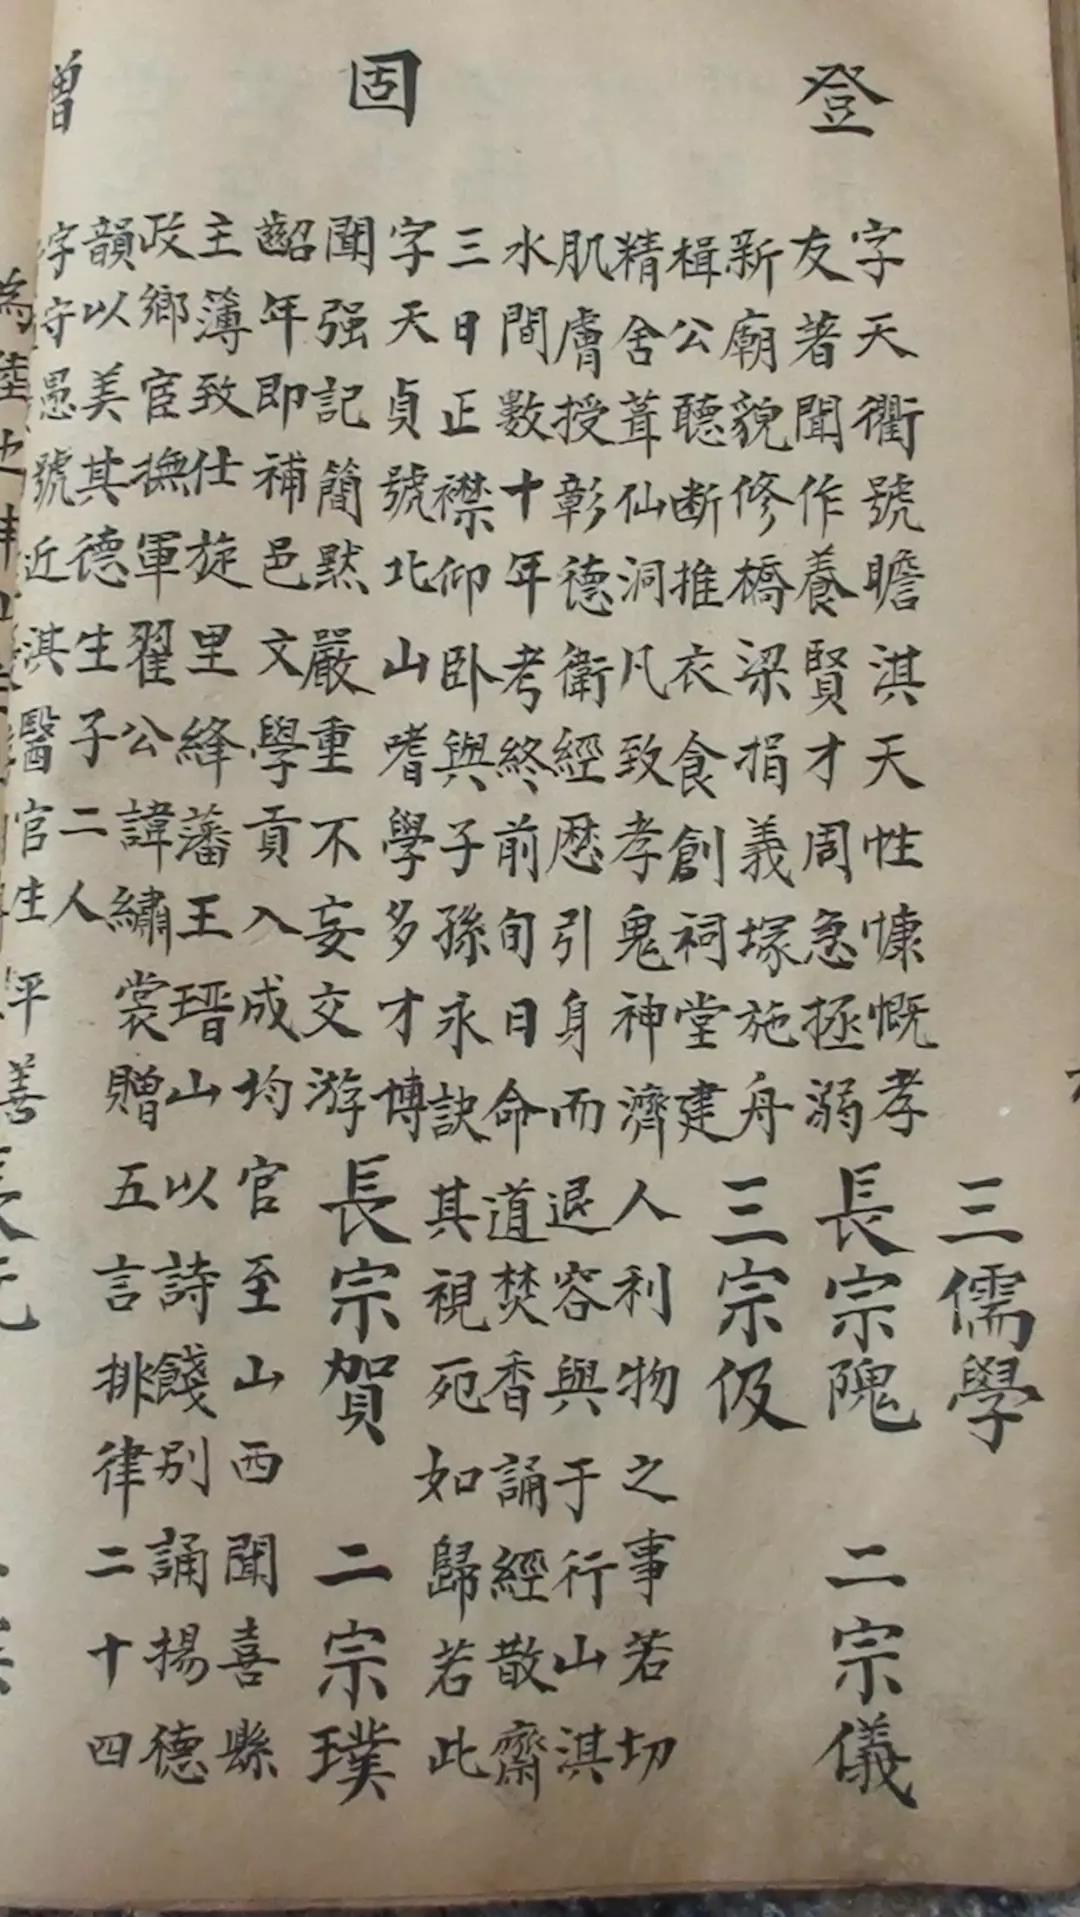 三儒學
登
字天衢號瞻淇天性慷慨孝
友著聞作養賢才周急拯溺
新廟貌修橋梁捐義塚施舟
長宗隗 二宗儀
三宗伋
楫公聽断推衣食創祠堂建
精舍葺仙洞凡致孝鬼神濟人利物之事若切
肌膚授彰德衛經歴引身而退容與于行山淇
水間數十年考終前旬日命道焚香誦經散齋
三日正襟仰卧與子孫永訣其視死如歸若此
固
字天貞號北山嗜學多才博
聞强記簡黙嚴重不妄交游
長宗賀 二宗璞
齠年即補邑文學貢入成均官至山西聞喜縣
主簿致仕旋里絳藩王瑨山以詩餞別誦揚德
政鄉宦撫軍翟公諱繡裳贈五言排律二十四
韻以美其德生子二人
字守愚號近淇醫官生